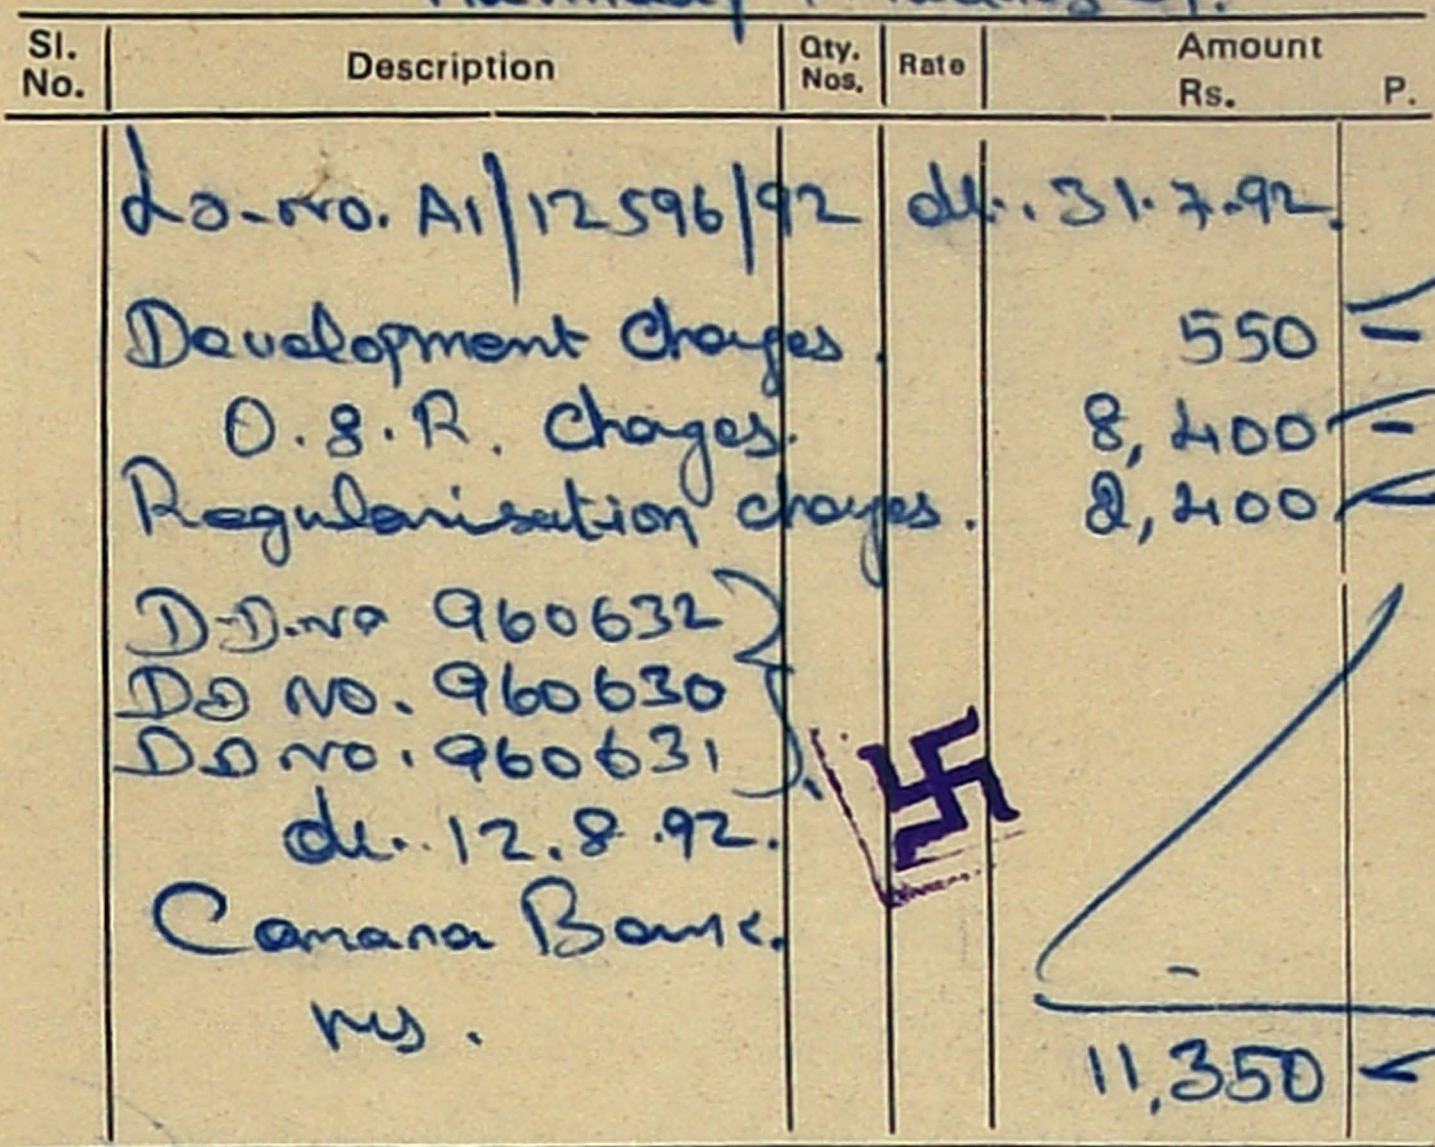 Sl. No. Description Qty. Nos. Rate Amount Rs. P.
Lo-No. A1/12596/92 dt. 31.7.92.
Development Charges. 550 -
O.S.R. Charges. 8,400 -
Regularisation charges. 2,400 -
D-D.No 960632
DD NO. 960630
DD NO. 960631
dt. 12.8.92.
Canara Bank.
11,350 -